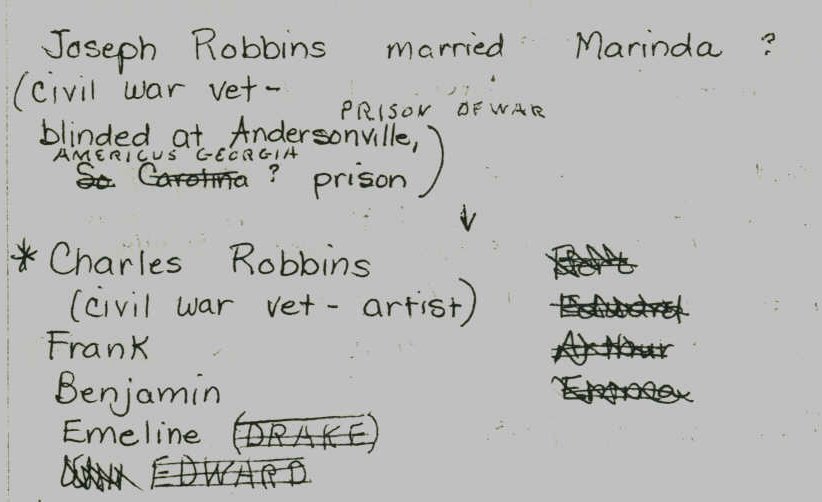 Joseph Robbins married Marinda ?
(civil war vet-
PRISON OF WAR
blinded at Andersonville,
AMERICUS GEORGIA
So Carolina ? prison)
* Charles Robbins
(civil war vet - artist)
Frank
Benjamin
Emeline (DRAKE)
EDWARD
Edward
Arthur
Emma